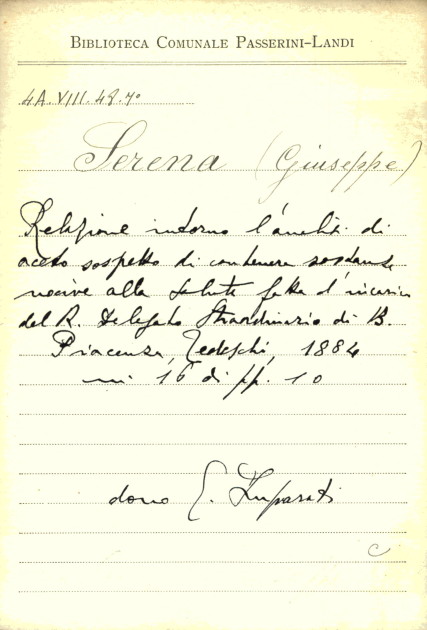 BIBLIOTECA COMUNALE PASSERINI-LANDI
4A.VIII.48.7°
Serena (Giuseppe)
Relazione intorno l'analisi di
aceto sospetto di contenere sostanze
nocive alla salute fatta d'incarico
del R. Delegato Straordinario di B.
Piacenza, Tedeschi, 1884
in 16 di pp. 10
dono E. Imparati
C